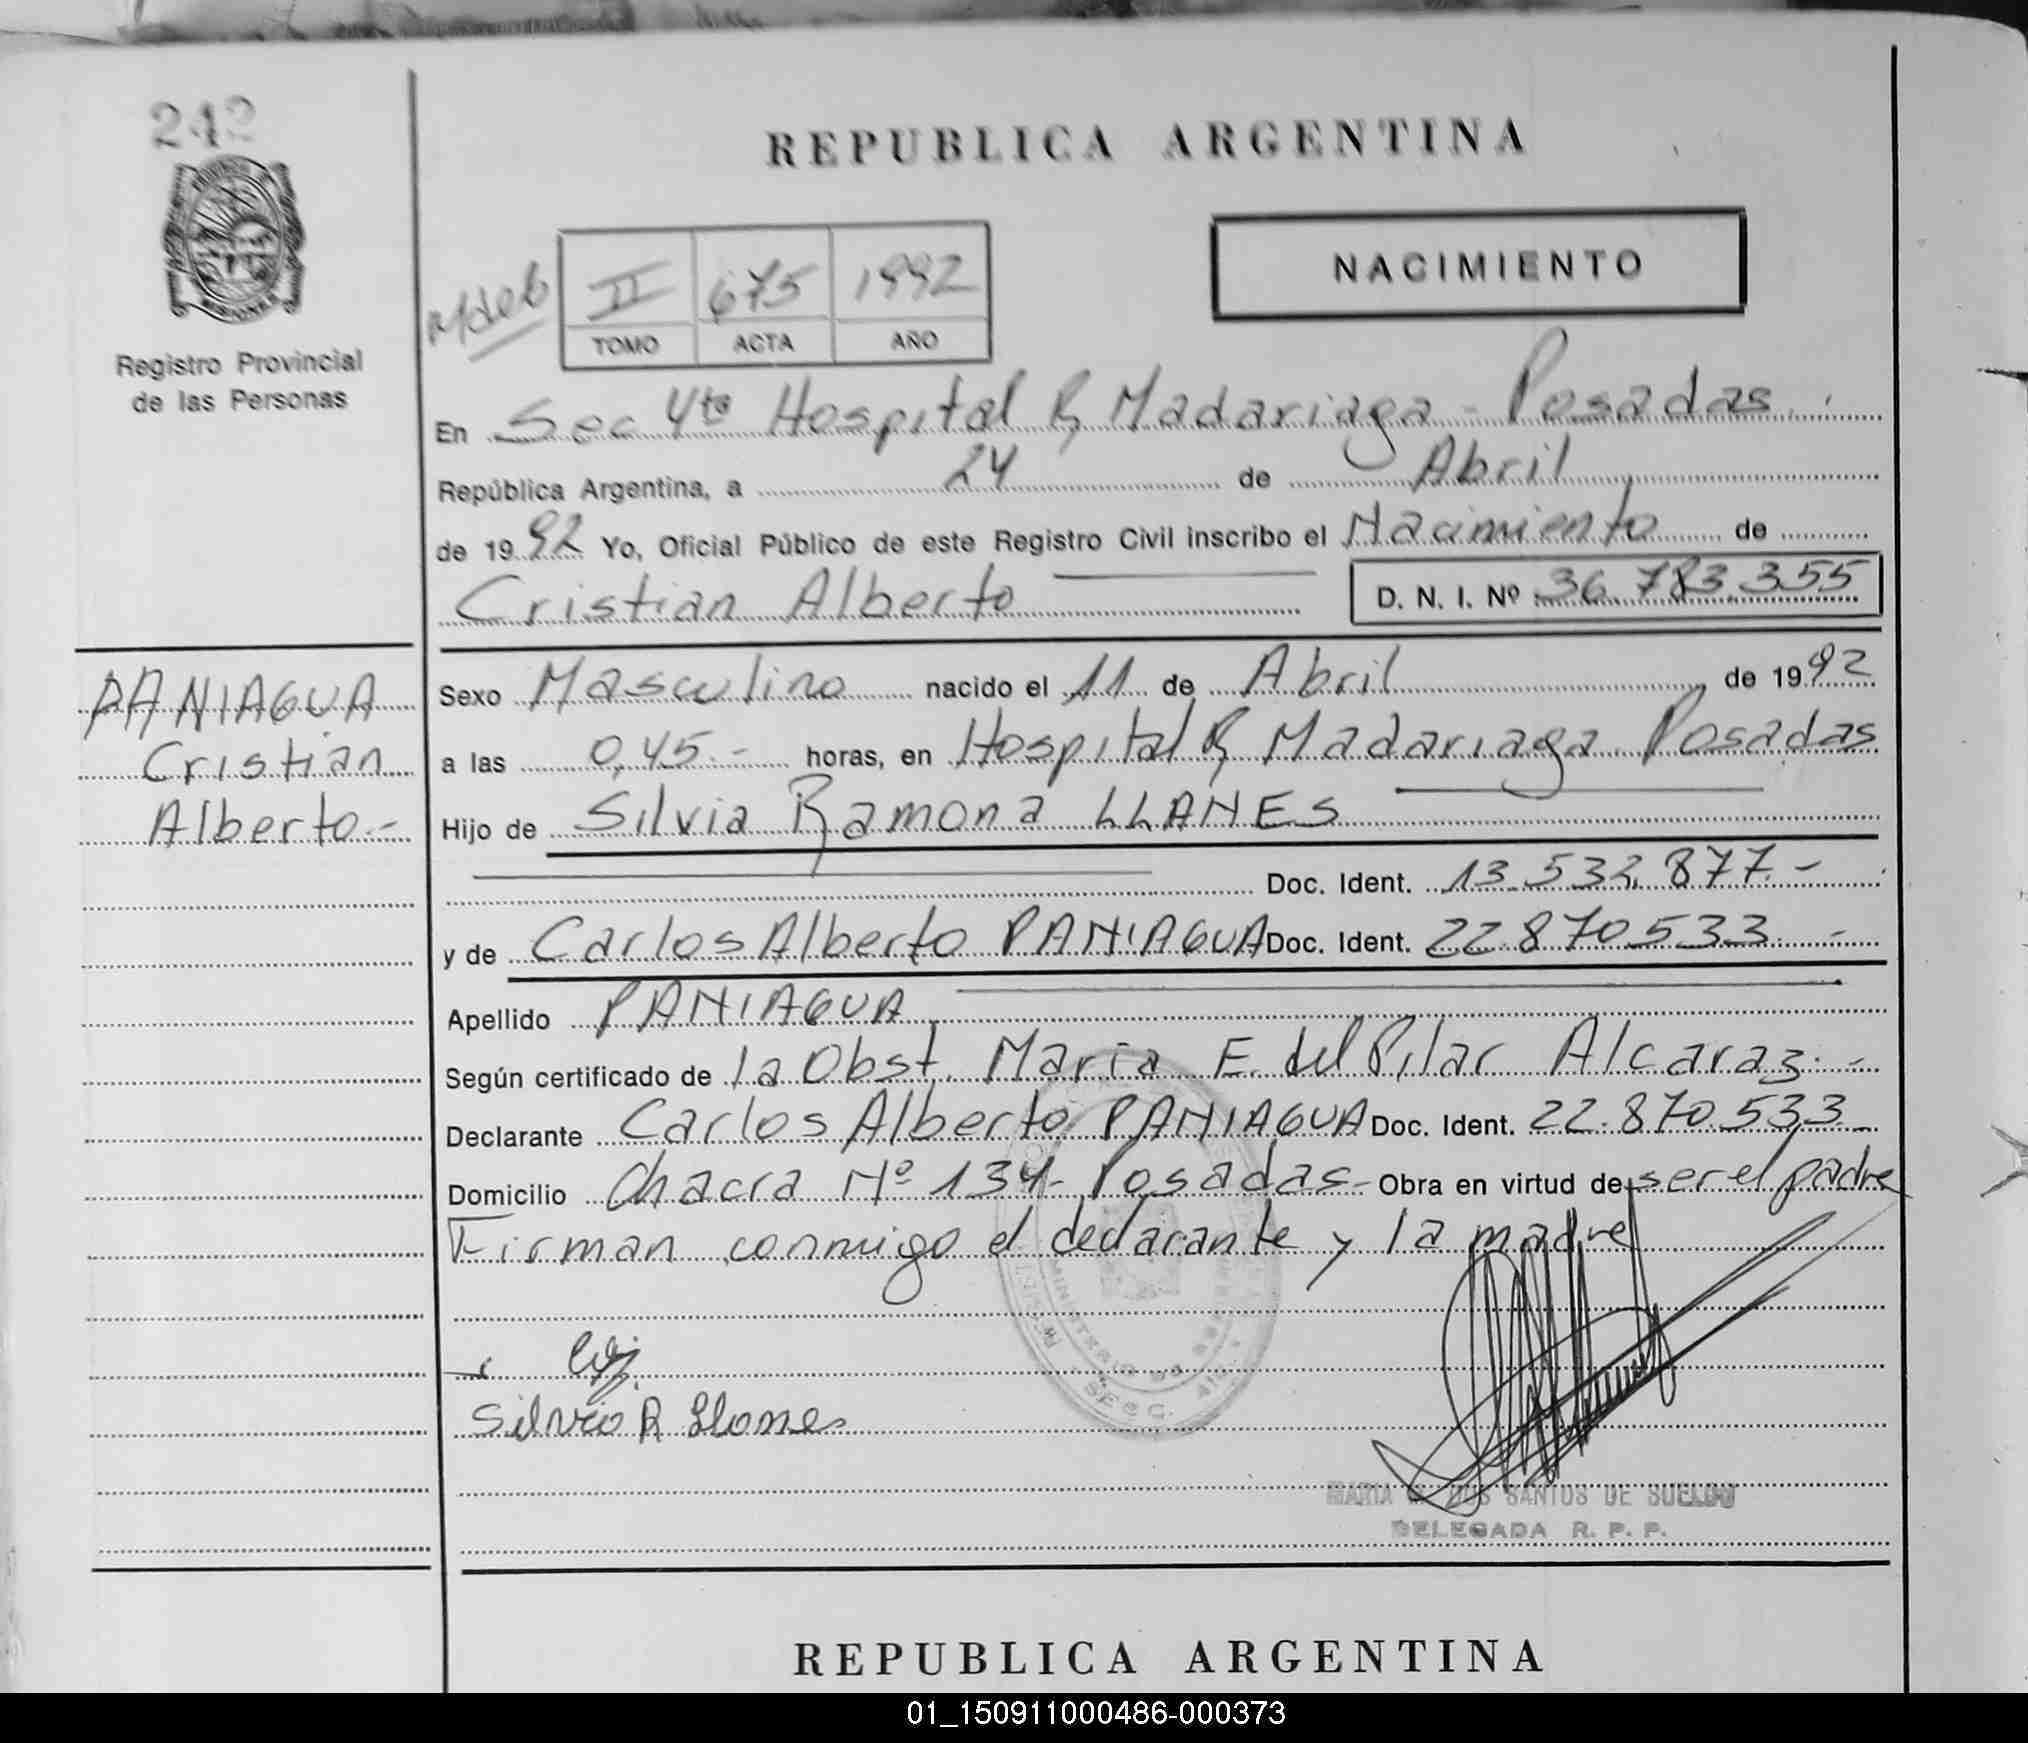 242
REPUBLICA ARGENTINA
NACIMIENTO
II 675 1992
TOMO ACTA AÑO
Registro Provincial
de las Personas
En Sec 4ta Hospital R, Madariaga - Posadas.
República Argentina, a 24 de Abril
de 1992 Yo, Oficial Público de este Registro Civil inscribo el Nacimiento de
Cristian Alberto D. N. I. Nº 36.783.355
PANIAGUA
Cristian
Alberto.-
Sexo Masculino nacido el 11 de Abril de 1992
a las 0,45.- horas, en Hospital R, Madariaga. Posadas
Hijo de Silvia Ramona LLANES
Doc. Ident. 13.532.877.-
y de Carlos Alberto PANIAGUA Doc. Ident. 22.870.533.-
Apellido PANIAGUA
Según certificado de la Obst. Maria E. del Pilar Alcaraz.-
Declarante Carlos Alberto PANIAGUA Doc. Ident. 22.870.533.-
Domicilio Chacra Nº 134- Posadas- Obra en virtud de ser el padre
Firman conmigo el declarante y la madre
Silvia R Llanes
MARIA DOS SANTOS DE SUELDO
DELEGADA R. P. P.
REPUBLICA ARGENTINA
01_150911000486-000373